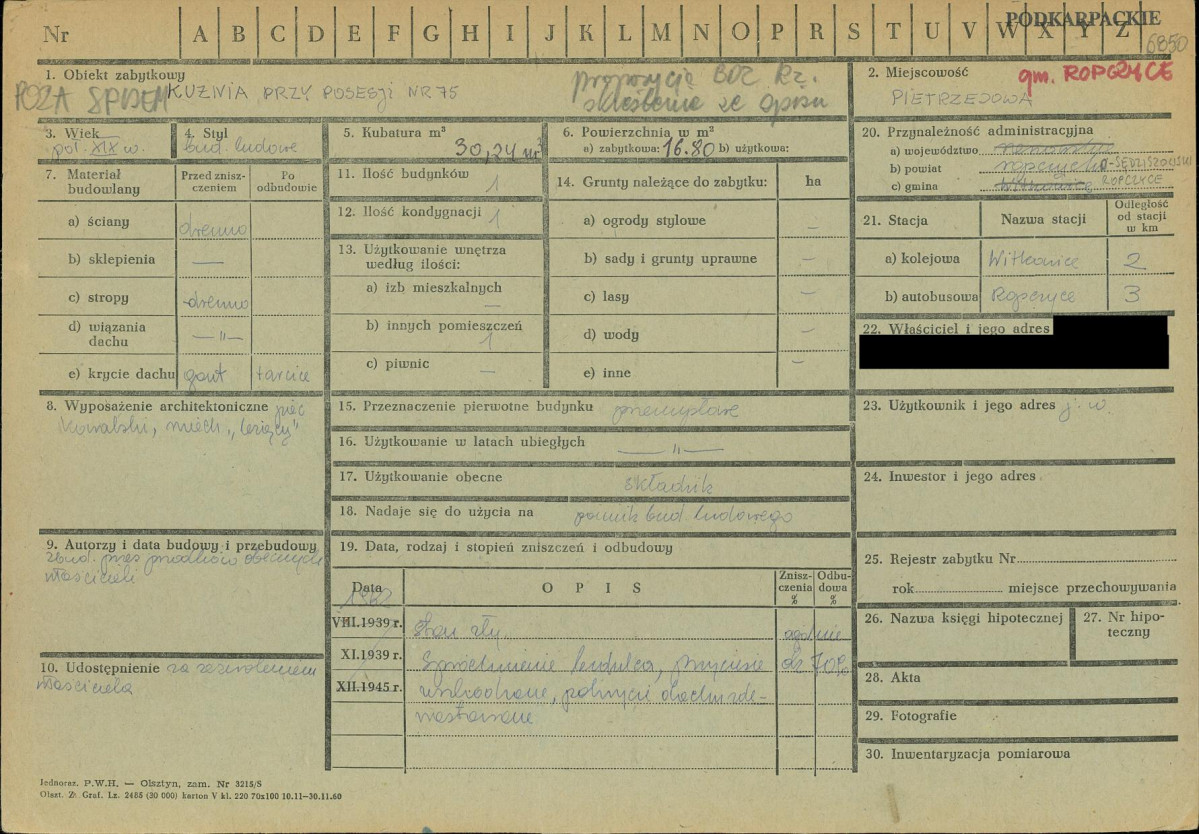 Nr A B C D E F G H I J K L M N O P R S T U V W X Y Z
PODKARPACKIE
6850
1. Obiekt zabytkowy
POZA SPISEM KUŹNIA PRZY POSESJI NR 75
propozycja BDZ Rz.
skreślenie ze spisu
2. Miejscowość gm. ROPCZYCE
PIETRZEJOWA
3. Wiek
poł. XIX w.
4. Styl
bud. ludowe
5. Kubatura m³
30,24 m³
6. Powierzchnia w m²
a) zabytkowa: 16.80 b) użytkowa:
20. Przynależność administracyjna
a) województwo
b) powiat ropczycko-SĘDZISZOWSKI
c) gmina Witkowice ROPCZYCE
7. Materiał budowlany
Przed zniszczeniem
Po odbudowie
a) ściany drewno
b) sklepienia —
c) stropy drewno
d) wiązania dachu —"—
e) krycie dachu gont tarcice
11. Ilość budynków 1
12. Ilość kondygnacji 1
13. Użytkowanie wnętrza według ilości:
a) izb mieszkalnych —
b) innych pomieszczeń 1
c) piwnic —
14. Grunty należące do zabytku: ha
a) ogrody stylowe —
b) sady i grunty uprawne —
c) lasy —
d) wody —
e) inne —
21. Stacja
Nazwa stacji
Odległość od stacji w km
a) kolejowa Witkowice 2
b) autobusowa Ropczyce 3
22. Właściciel i jego adres
8. Wyposażenie architektoniczne piec
kowalski, miech „leżący"
15. Przeznaczenie pierwotne budynku przemysłowe
16. Użytkowanie w latach ubiegłych —"—
17. Użytkowanie obecne składzik
18. Nadaje się do użycia na pomnik bud. ludowego
23. Użytkownik i jego adres j. w.
24. Inwestor i jego adres
9. Autorzy i data budowy i przebudowy
zbud. przez przodków obecnych
właścicieli
10. Udostępnienie za zezwoleniem
właściciela
19. Data, rodzaj i stopień zniszczeń i odbudowy
Data
OPIS
Zniszczenia %
Odbudowa %
1962
VIII.1939 r. Stan zły. ogólnie
XI.1939 r. Spróchnienie budulca, przyciesie ok 70%
XII.1945 r. uszkodzone, pokrycie dachu zde-
wastowane
25. Rejestr zabytku Nr
rok miejsce przechowywania
26. Nazwa księgi hipotecznej
27. Nr hipoteczny
28. Akta
29. Fotografie
30. Inwentaryzacja pomiarowa
Jednoraz. P.W.H. — Olsztyn, zam. Nr 3215/S
Olszt. Z. Graf. Lz. 2485 (30 000) karton V kl. 220 70x100 10.11—30.11.60